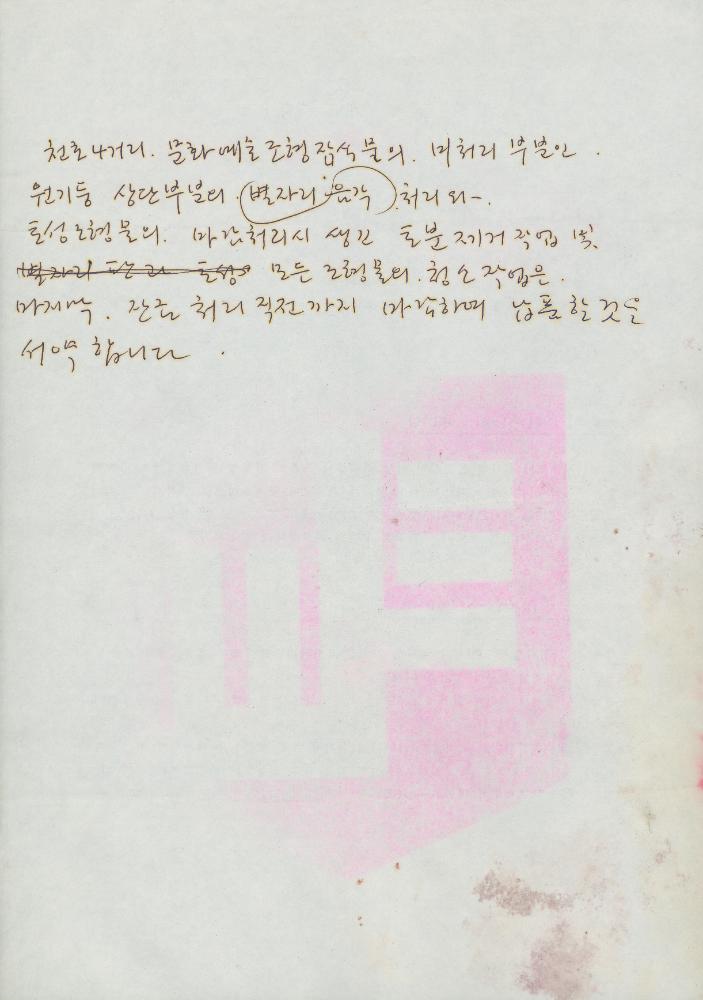 천호4거리. 문화예술조형장식물의. 미처리 부분인.
원기둥 상단부분의. 별자리 음각 처리와.
토성조형물의. 마감처리시 생긴 돌분제거작업 및.
모든 조형물의. 청소작업은.
마지막. 잔금 처리 직전까지 마감하며 납품할것을
서약합니다.